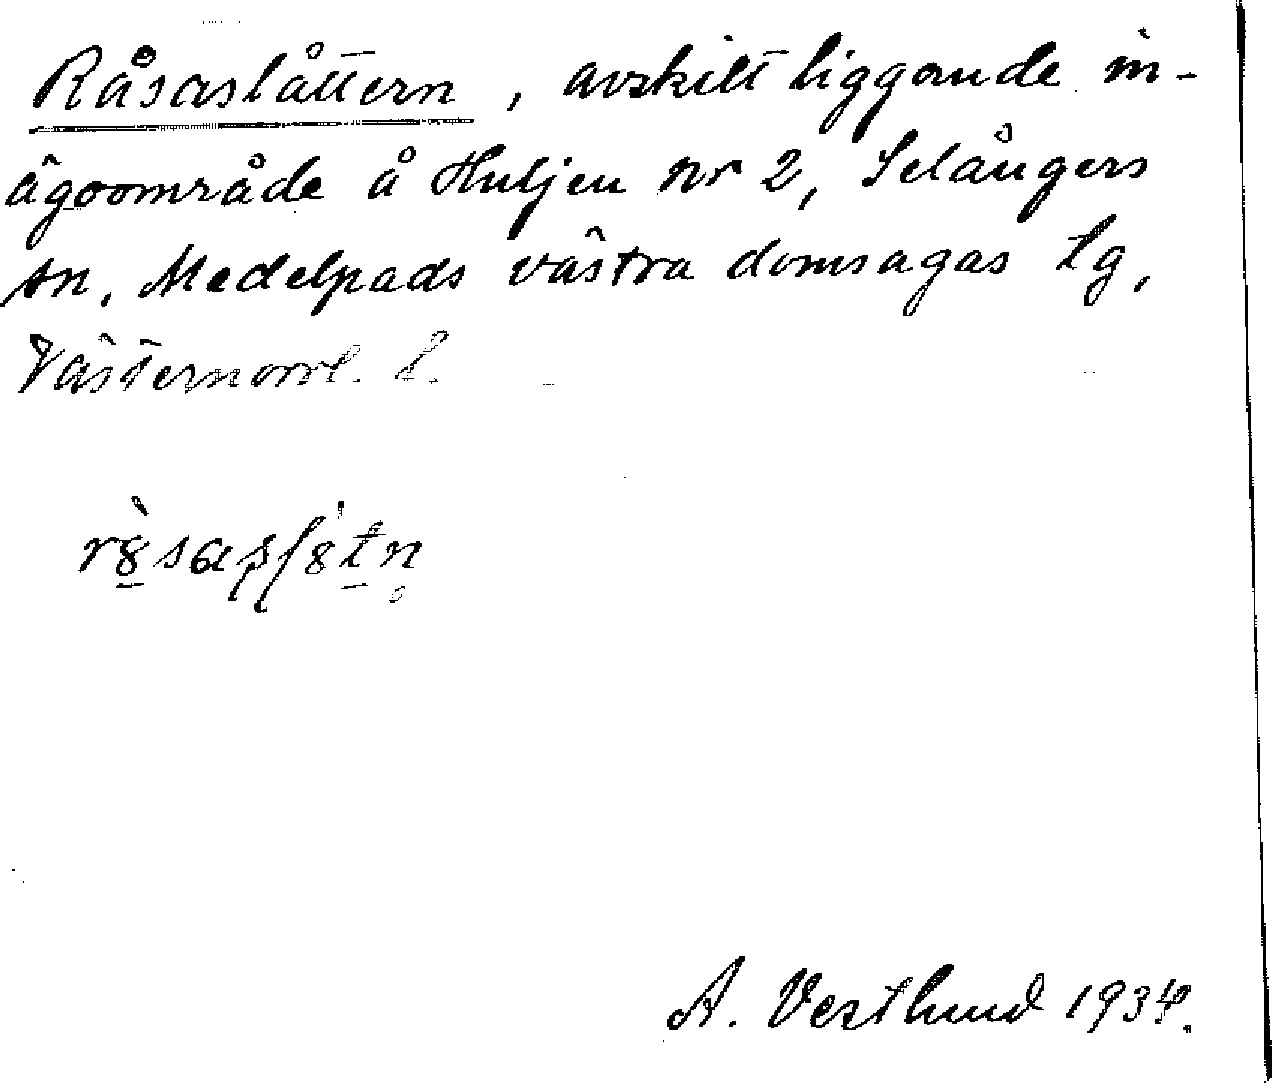 Råsaslåttern, avskilt liggande in-
ägoområde å Huljen nr 2, Selångers
sn, Medelpads västra domsagas tg,
Västernorrl. l.
A. Vestlund 1934.